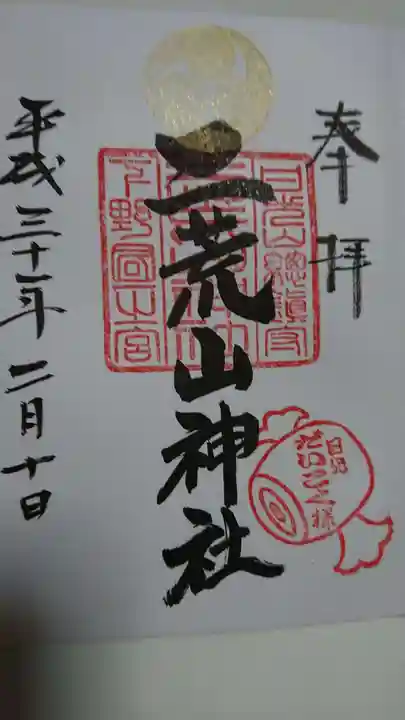 奉拝
二荒山神社
平成三十一年二月十日
日光山總鎮守
下野國一之宮
日光
だいこく様